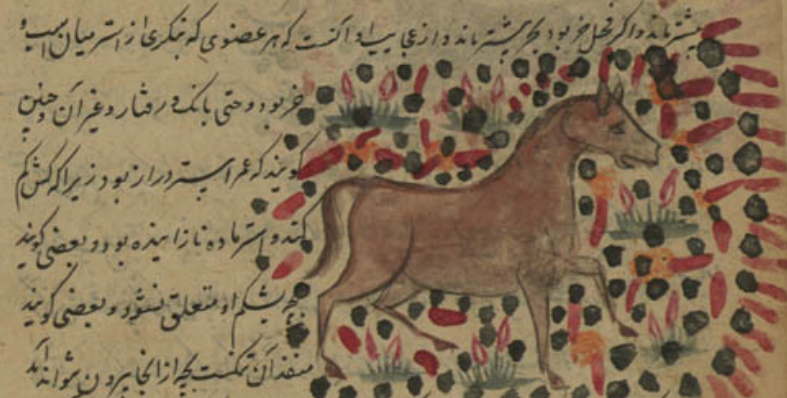 بیشتر ماند و اگر فحل خر بود بخر بیشتر ماند و از عجایب او آنست که هر عضوی که بنگری از استر میان اسب و
خر بود و حتی بانک و رفتار و غیر آن و چنین
کویند که عمر استر دراز بود زیرا که کشن کم
کند و استر ماده نازاینده بود و بعضی کویند
بچه بشکم او متعلق نشود و بعضی کویند
منفذ آن تنکست بچه از انجا بیرون نتواند آمد